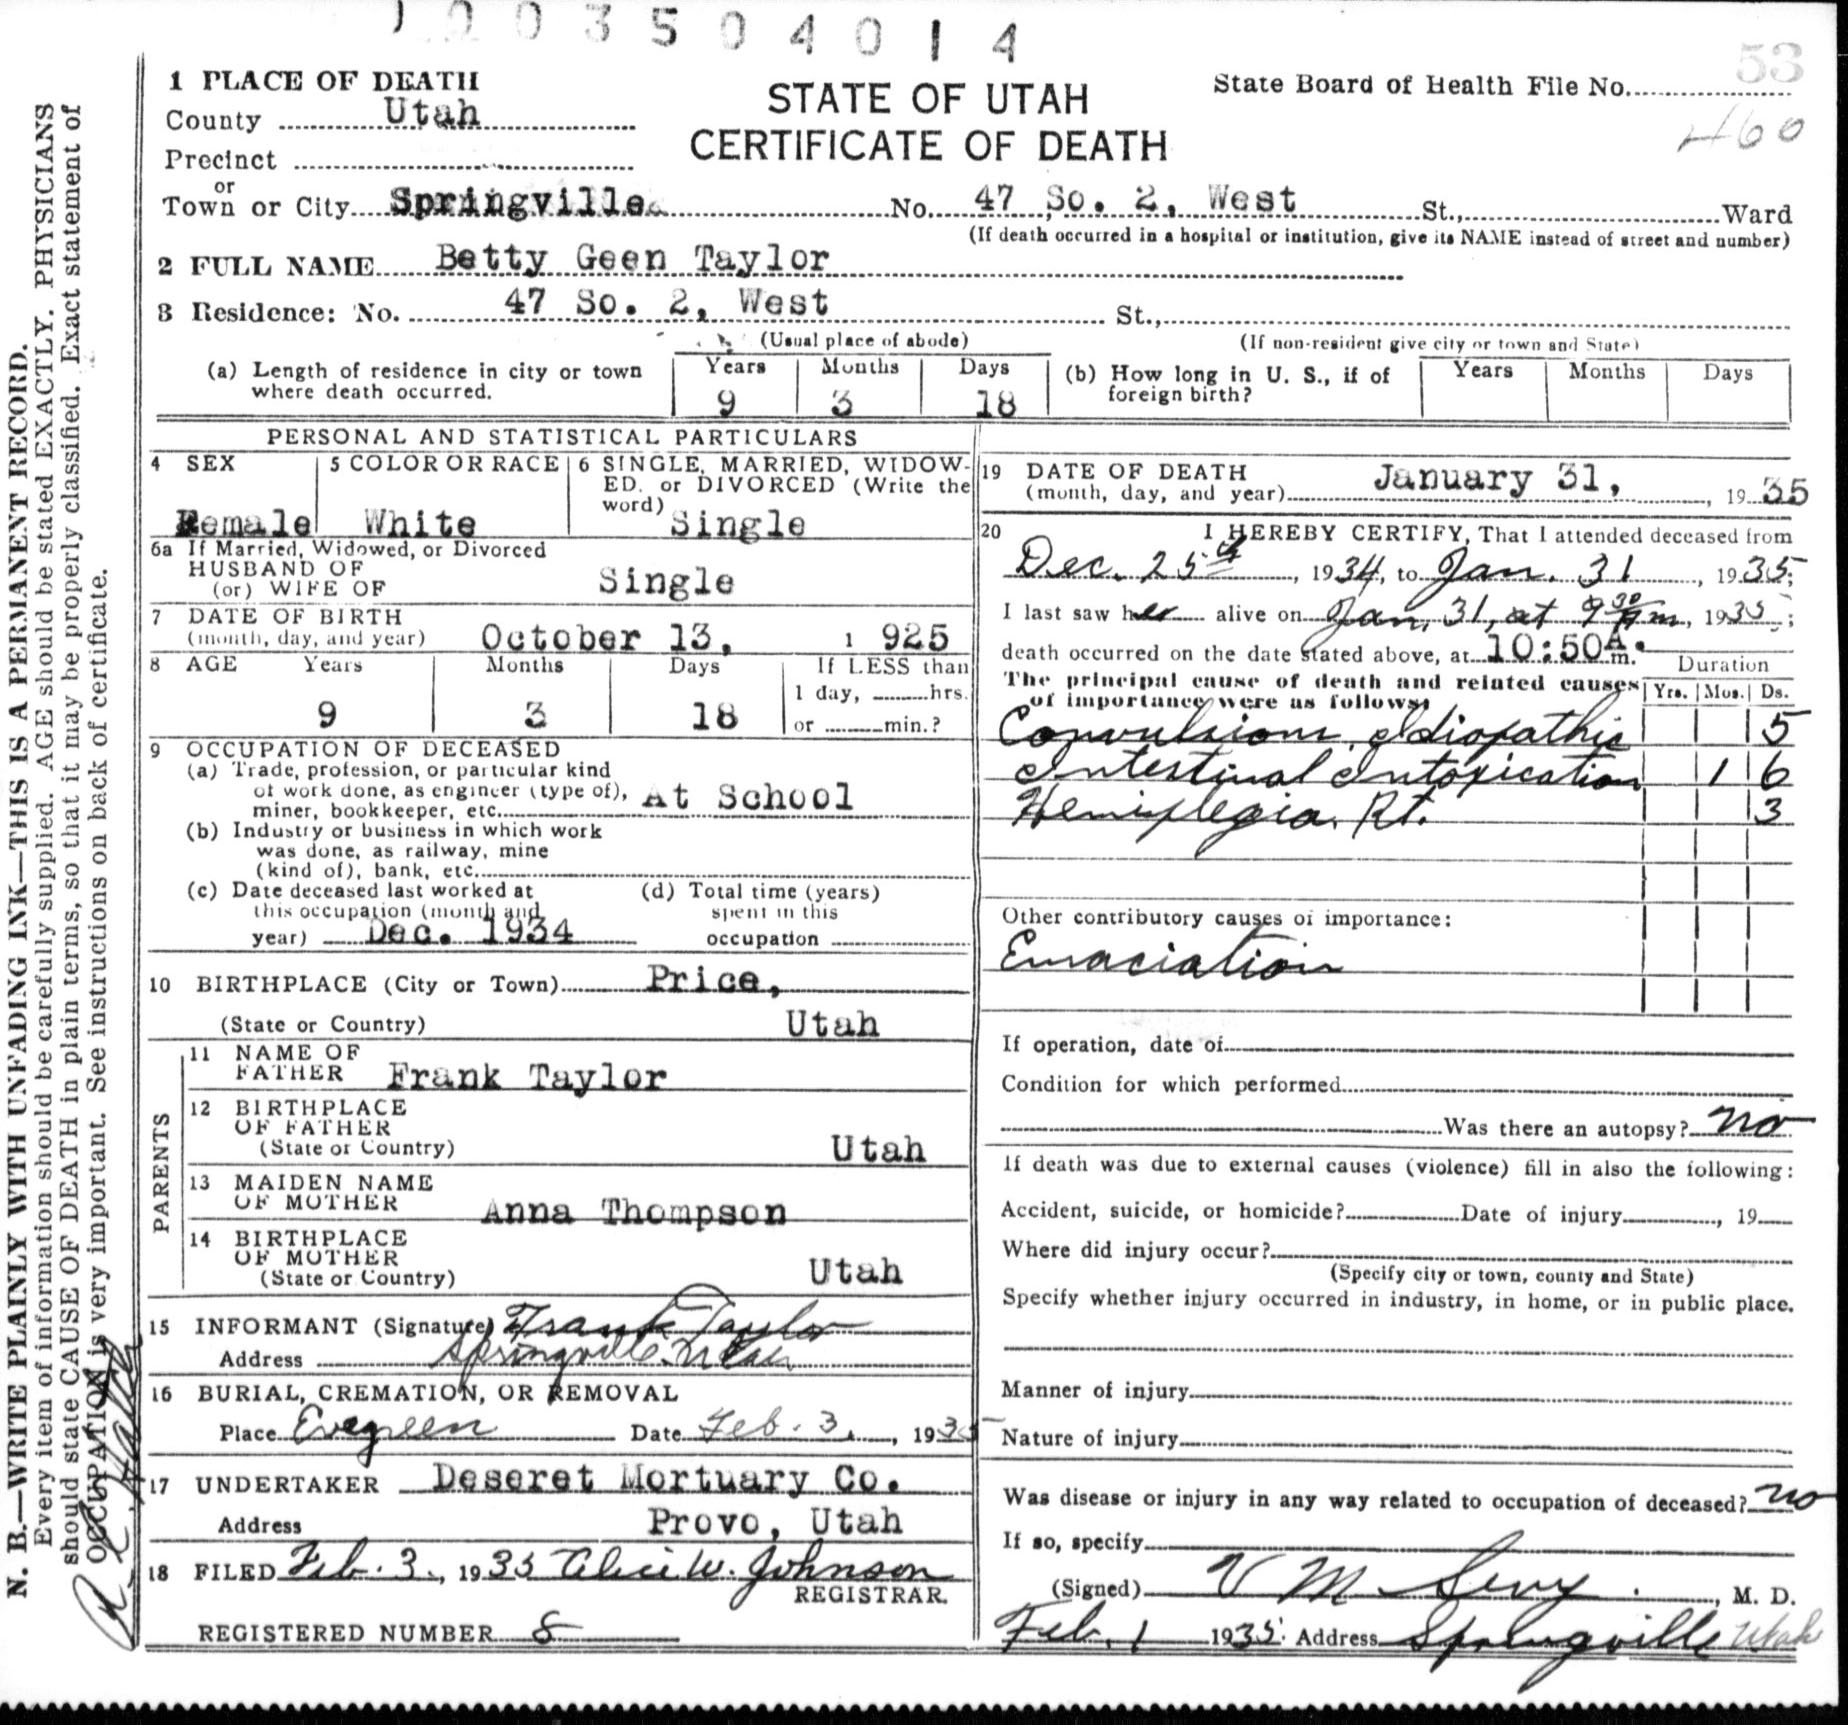 1003504014
53
1 PLACE OF DEATH
STATE OF UTAH
CERTIFICATE OF DEATH
State Board of Health File No.
460
County Utah
Precinct
or
Town or City Springville No. 47 So. 2, West St., Ward
(If death occurred in a hospital or institution, give its NAME instead of street and number)
2 FULL NAME Betty Geen Taylor
3 Residence: No. 47 So. 2, West St.,
(Usual place of abode) (If non-resident give city or town and State)
(a) Length of residence in city or town where death occurred. Years 9 Months 3 Days 18
(b) How long in U. S., if of foreign birth? Years Months Days
PERSONAL AND STATISTICAL PARTICULARS
4 SEX Female
5 COLOR OR RACE White
6 SINGLE, MARRIED, WIDOW-
ED, or DIVORCED (Write the
word) Single
6a If Married, Widowed, or Divorced
HUSBAND OF
(or) WIFE OF Single
7 DATE OF BIRTH
(month, day, and year) October 13, 1 925
8 AGE Years Months Days If LESS than
1 day, hrs.
9 3 18 or min.?
9 OCCUPATION OF DECEASED
(a) Trade, profession, or particular kind
of work done, as engineer (type of),
miner, bookkeeper, etc. At School
(b) Industry or business in which work
was done, as railway, mine
(kind of), bank, etc.
(c) Date deceased last worked at
this occupation (month and
year) Dec. 1934
(d) Total time (years)
spent in this
occupation
10 BIRTHPLACE (City or Town) Price,
(State or Country) Utah
PARENTS
11 NAME OF
FATHER Frank Taylor
12 BIRTHPLACE
OF FATHER
(State or Country) Utah
13 MAIDEN NAME
OF MOTHER Anna Thompson
14 BIRTHPLACE
OF MOTHER
(State or Country) Utah
15 INFORMANT (Signature) Frank Taylor
Address Springville Utah
16 BURIAL, CREMATION, OR REMOVAL
Place Evegreen Date Feb. 3, 1935
17 UNDERTAKER Deseret Mortuary Co.
Address Provo, Utah
18 FILED Feb. 3, 1935 Alice W. Johnson
REGISTRAR.
REGISTERED NUMBER 8
19 DATE OF DEATH
(month, day, and year) January 31, , 19 35
20 I HEREBY CERTIFY, That I attended deceased from
Dec. 25th, 1934, to Jan. 31, 1935;
I last saw her alive on Jan, 31, at 9 30 Am, 1935;
death occurred on the date stated above, at 10:50 A. m.
Duration
The principal cause of death and related causes
of importance were as follows: Yrs. Mos. Ds.
Convulsions, Idiopathic 5
Intestinal Intoxication 1 6
Hemiplegia, Rt. 3
Other contributory causes of importance:
Emaciation
If operation, date of
Condition for which performed
Was there an autopsy? no
If death was due to external causes (violence) fill in also the following:
Accident, suicide, or homicide? Date of injury , 19
Where did injury occur?
(Specify city or town, county and State)
Specify whether injury occurred in industry, in home, or in public place.
Manner of injury
Nature of injury
Was disease or injury in any way related to occupation of deceased? no
If so, specify
(Signed) V M Sevy, M. D.
Feb. 1 1935. Address Springville Utah
N. B.—WRITE PLAINLY WITH UNFADING INK—THIS IS A PERMANENT RECORD.
Every item of information should be carefully supplied. AGE should be stated EXACTLY. PHYSICIANS
should state CAUSE OF DEATH in plain terms, so that it may be properly classified. Exact statement of
OCCUPATION is very important. See instructions on back of certificate.